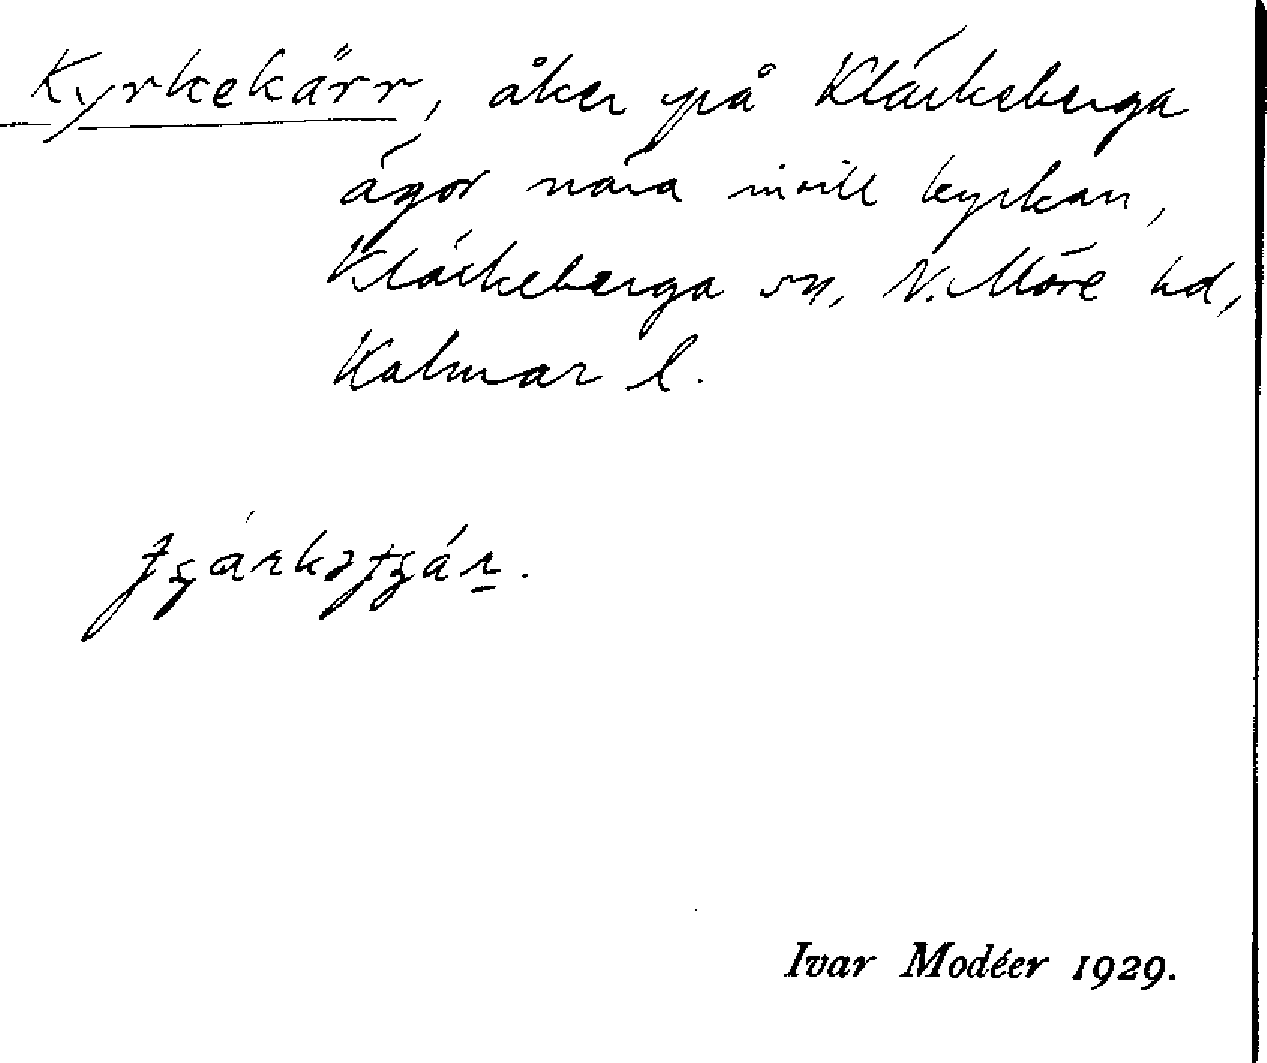 Kyrkekärr, åker på Kläckeberga
ägor nära intill kyrkan,
Kläckeberga sn, N. Möre hd,
Kalmar l.
Ivar Modéer 1929.